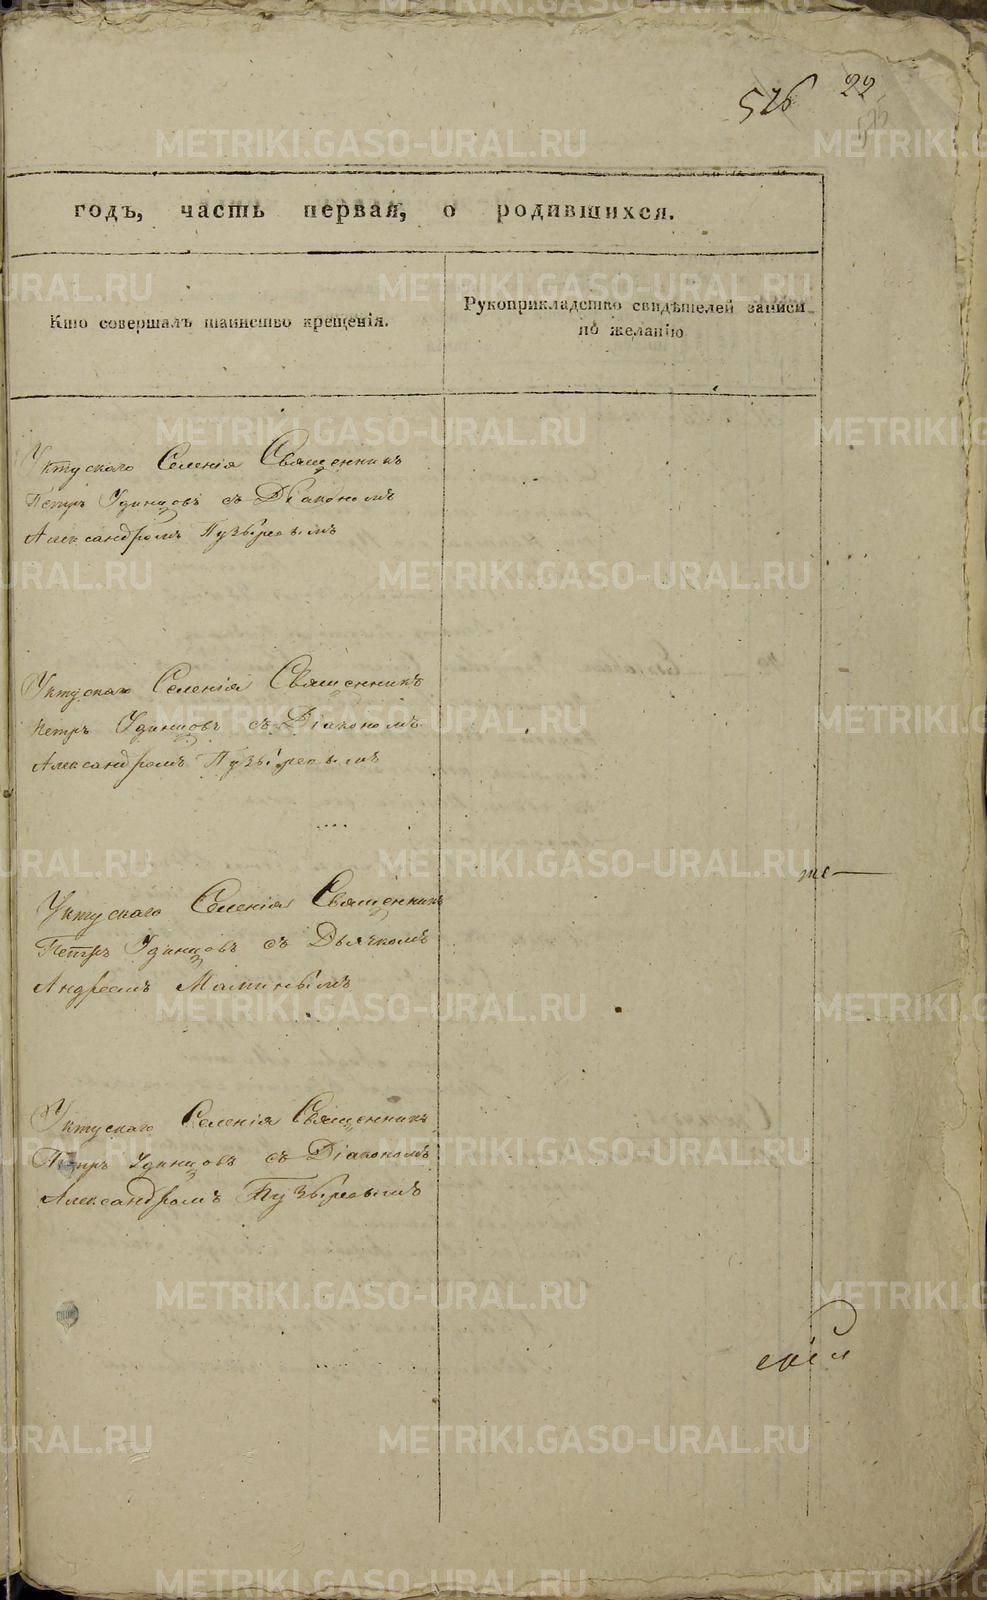 526 22
годъ, часть первая, о родившихся.
Кто совершалъ таинство крещенія.
Рукоприкладство свидѣтелей записи
по желанію
Уктускаго Селенія Священникъ
Петръ Удинцовъ съ Діакономъ
Александромъ Пузыревымъ
Уктускаго Селенія Священникъ
Петръ Удинцовъ съ Діакономъ
Александромъ Пузыревымъ
же
Уктускаго Селенія Священникъ
Петръ Удинцовъ съ Дьячкомъ
Андреемъ Маминымъ
Уктускаго Селенія Священникъ
Петръ Удинцовъ съ Діакономъ
Александромъ Пузыревымъ
METRIKI.GASO-URAL.RU